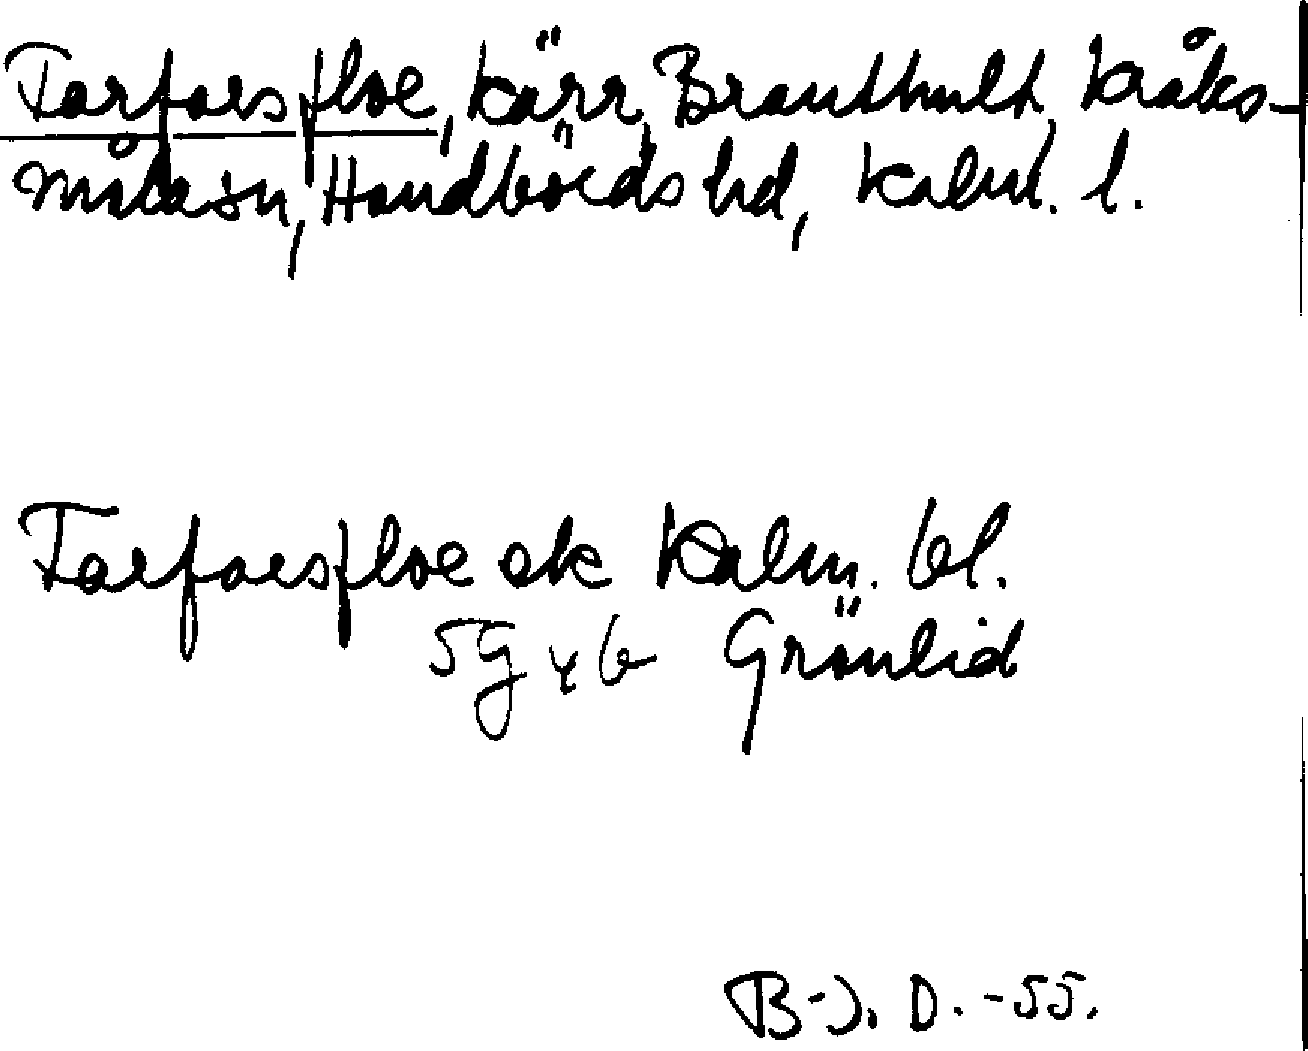 Farfarsfloe, kärr, Branthult, Kråks-
måla sn, Handbörds hd, Kalm. l.
Farfarsfloe ek Kalm. bl.
5G y b Grönlid
B-J. D. -55.